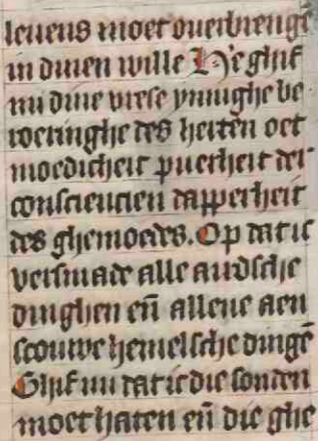 leuens moet ouerbrengē
in dinen wille Here ghif
mi dine vrese ynnighe be
roeringhe des herten oet
moedicheit puerheit der
consciencien dapperheit
des ghemoedes. Op dat ic
versmade alle audsche
dinghen eñ allene aen
scouwe hemelsche dingē
Ghif mi dat ic die sonden
moet haten eñ die ghe